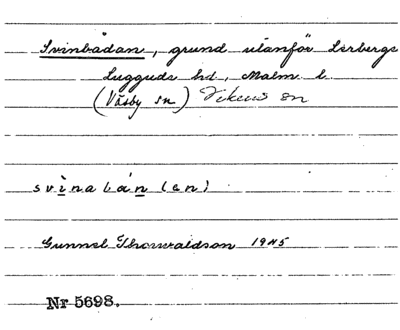 Svinbådan, grund utanför Lerbergs
Luggude hd, Malm. l.
(Väsby sn) Vikens sn
svìnabån (en)
Gunnel Thorwaldson 1945
Nr 5698.